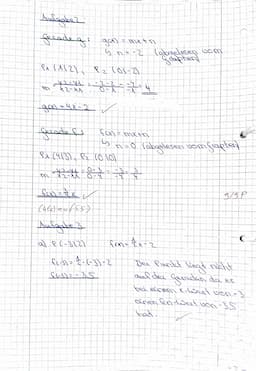 Aufgabe 2
Gerade g: g(x) = mx+n
↳ n = -2 (abgelesen vom Graphen)
P₁ (1|2), P₂ (0|-2)
m = y2-y1 / x2-x1 = 4
g(x) = 4x-2 ✓
Gerade f: f(x) = mx+n
↳ n = 0 (abgelesen vom Graphen)
P₁ (4|3), P₂ (0|0)
m = y2-y1 / x2-x1 = 0-3 / 0-4 = -3 / -4 = 3 / 4
✓
Aufgabe 3
a) P (-3|2)
Der Punkt liegt nicht
auf der Geraden, da es
bei einem x-Wert von -3
einen f(x)-Wert von -3,5
hat.
f(-3) = -3,5